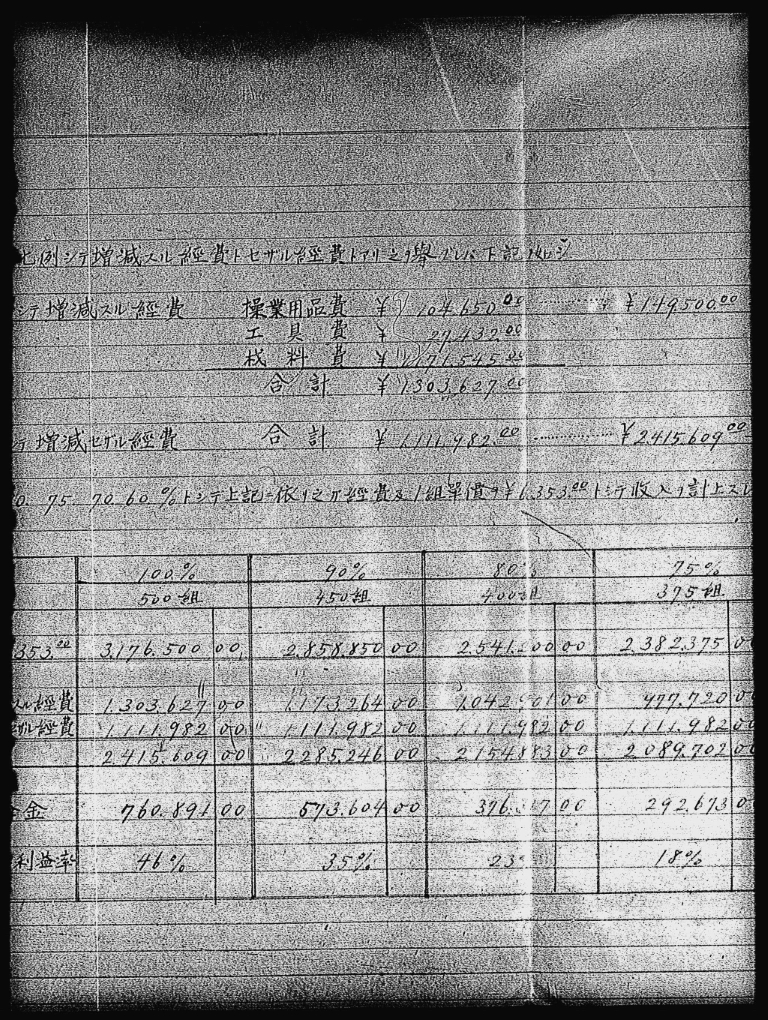 比例シテ増減スル経費トセザル経費トアリ之ヲ挙グレバ下記ノ如シ
シテ増減スル経費 操業用品費 ¥ 104.650.00 ¥149,500.00
工具費 ¥ 27.432.00
材料費 ¥ 1.171.545.00
合計 ¥ 1.303.627.00
増減セザル経費 合計 ¥ 1.111.982.00 ¥2.415.609.00
0. 75 70 60 %トシテ上記ニ依リ之ガ経費及1組単価ヲ¥1.353.00トシテ収入ヲ計上ス
100% 90% 80% 75%
500組 450組 400組 375組
353.00 3.176.500 00 2.858.850 00 2.541.200 00 2.382.375
スル経費 1.303.627 00 1.173.264 00 1.042.901 00 977.720
ザル経費 1.111.982 00 1.111.982 00 1.111.982 00 1.111.982
2.415.609 00 2.285.246 00 2.154.883 00 2.089.702
金 760.891 00 573.604 00 00 292.673
利益率 46% 35% 23 18%